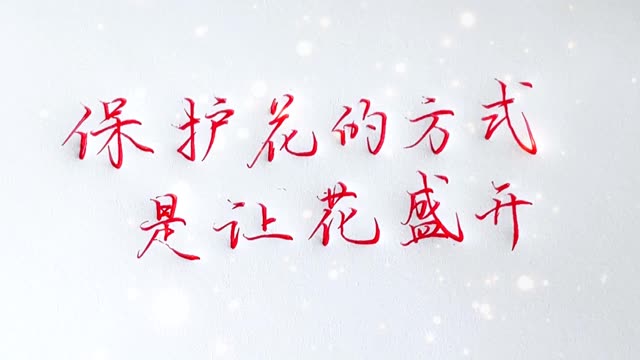 保护花的方式
是让花盛开